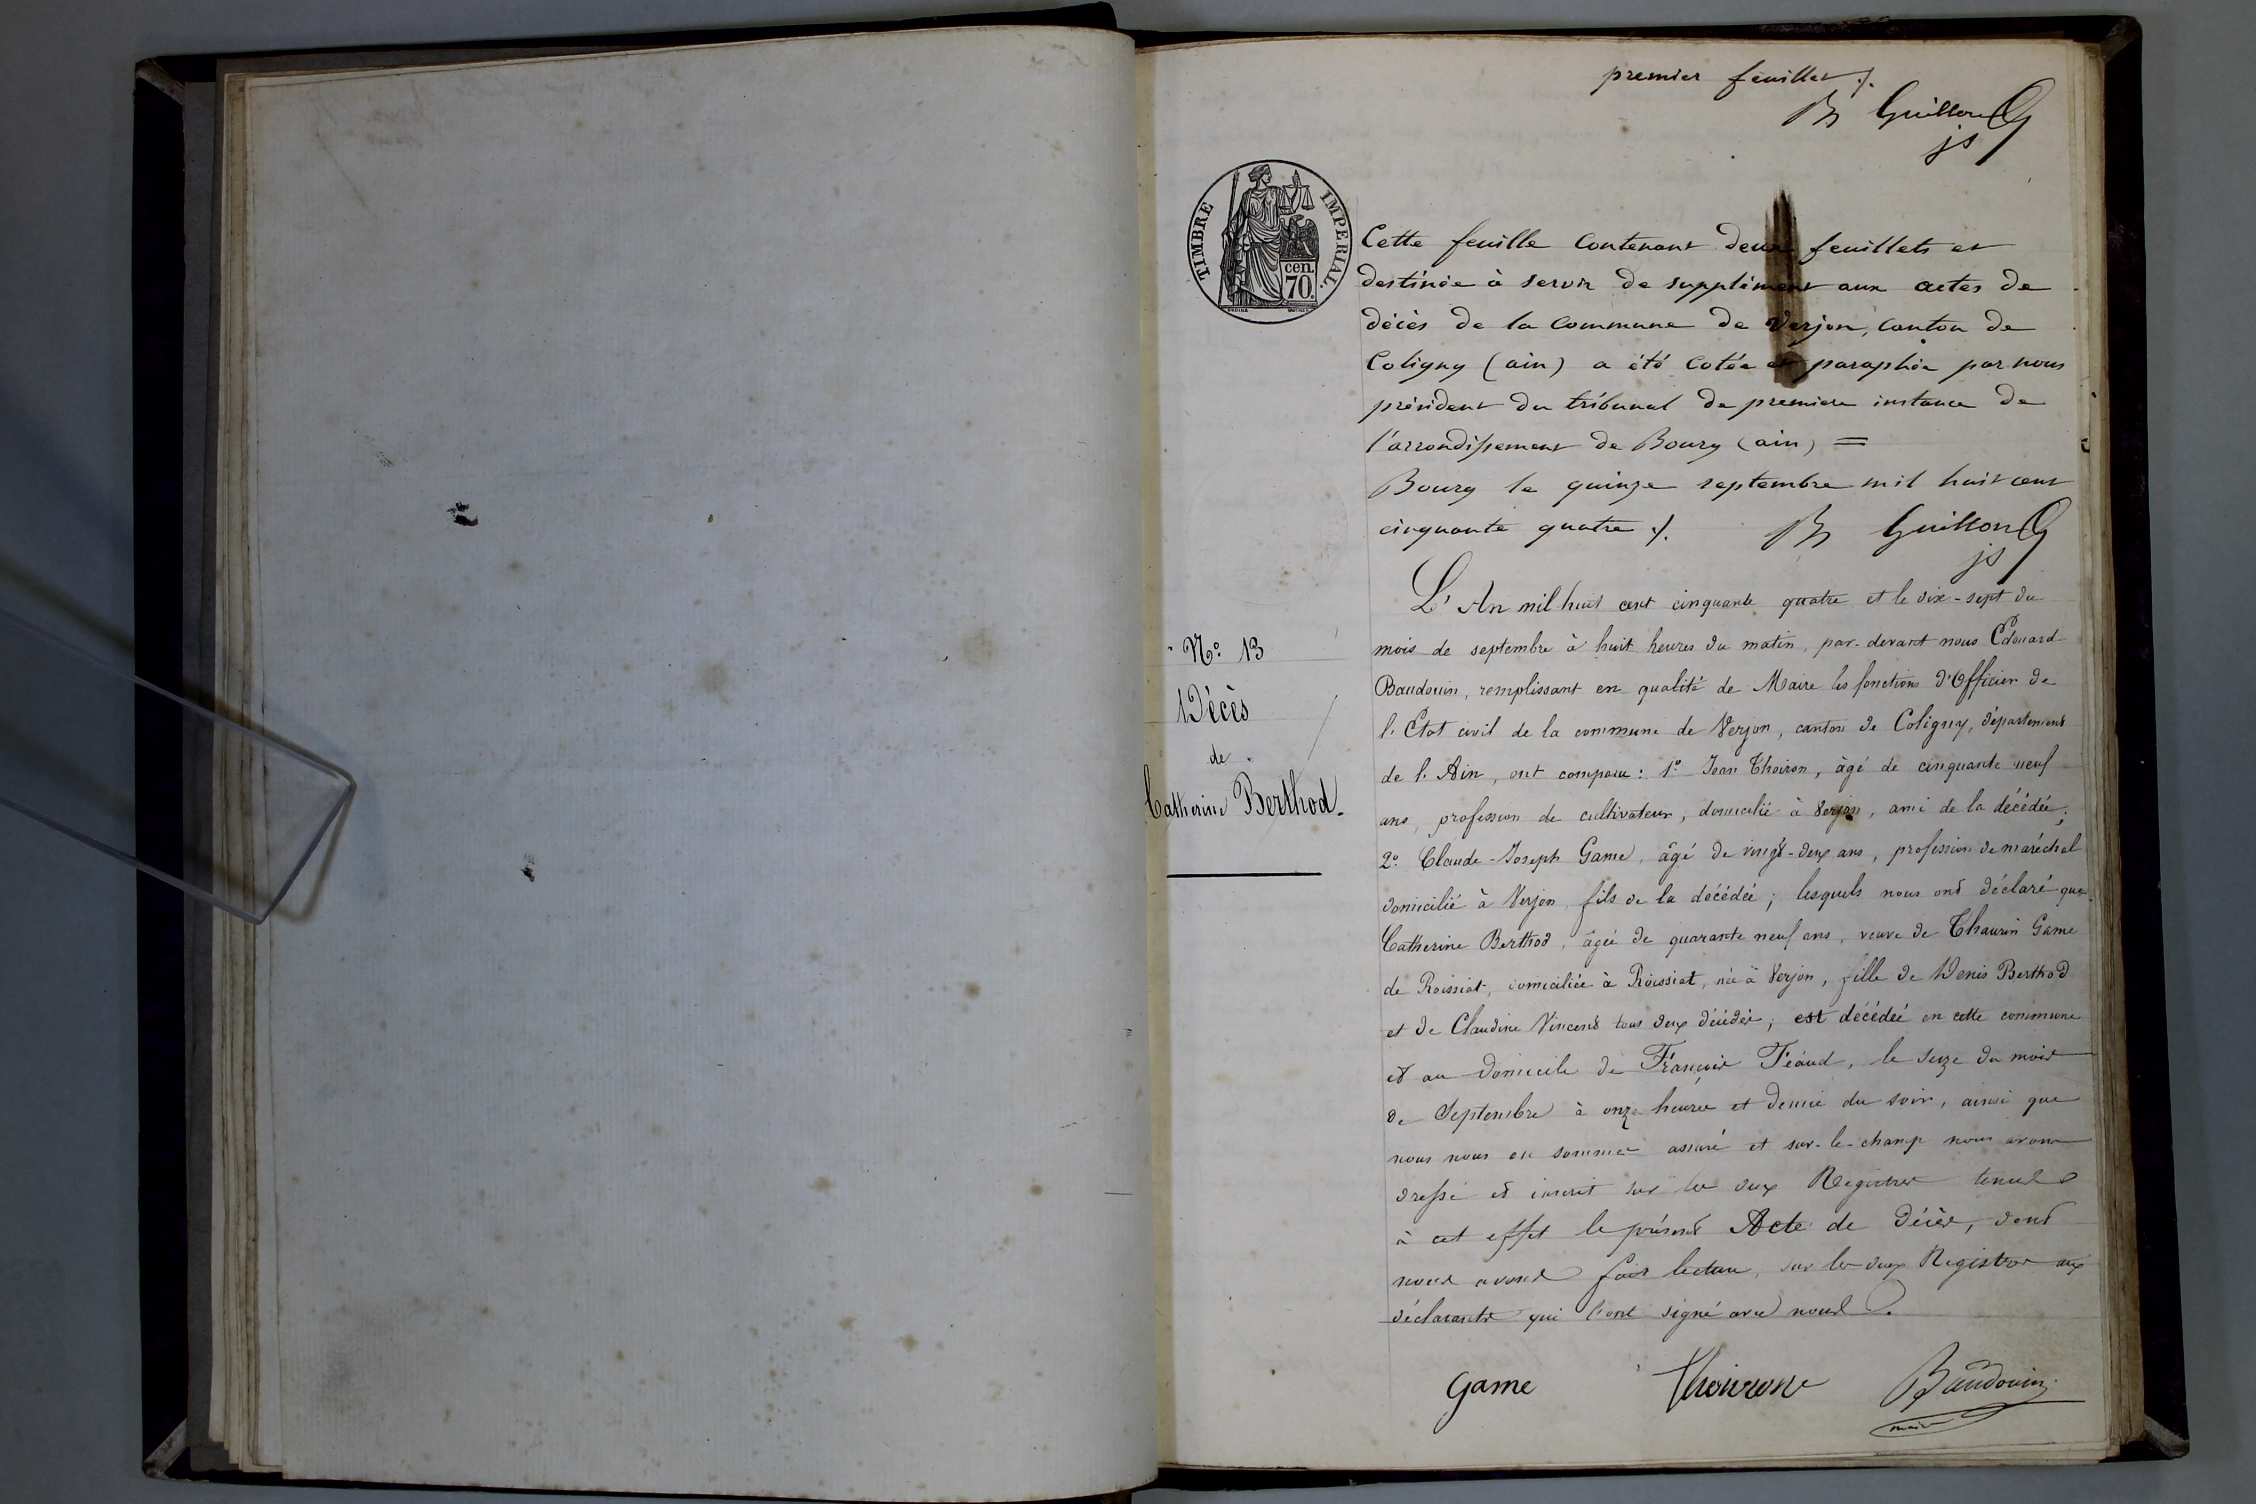 premier feuillet ⁒
B Guillon
js
TIMBRE IMPERIAL.
cen.
70.
Cette feuille contenant deux feuillets et
destinée à servir de supplément aux actes de
décès de la commune de Verjon, canton de
Coligny (ain) a été cotée et paraphée par nous
président du tribunal de premiere instance de
l'arrondissement de Bourg (ain) =
Bourg le quinze septembre mil huit cent
cinquante quatre ⁒
B Guillon
js
N.º 13
Décès
de
Catherine Berthod.
L'An mil huit cent cinquante quatre et le dix-sept du
mois de septembre à huit heures du matin, par-devant nous Edouard
Baudouin, remplissant en qualité de Maire les fonctions d'Officier de
l'Etat civil de la commune de Verjon, canton de Coligny, département
de l'Ain, ont comparu : 1º Jean Thoiron, âgé de cinquante neuf
ans, profession de cultivateur, domicilié à Verjon, ami de la décédée ;
2º Claude-Joseph Game, âgé de vingt-deux ans, profession de maréchal
domicilié à Verjon, fils de la décédée ; lesquels nous ont déclaré que
Catherine Berthod, âgée de quarante neuf ans, veuve de Thaurin Game
de Roissiat, domiciliée à Roissiat, née à Verjon, fille de Denis Berthod
et de Claudine Vincent tous deux décédés ; est décédée en cette commune
et au domicile de François Féaud, le seize du mois
de Septembre à onze heures et demie du soir, ainsi que
nous nous en sommes assuré et sur-le-champ nous avons
dressé et inscrit sur les deux Registres tenus
à cet effet le présent Acte de décès, dont
nous avons fait lecture, sur les deux Registres aux
déclarants qui l'ont signé avec nous.
Game
Thoiron
Baudouin
maire